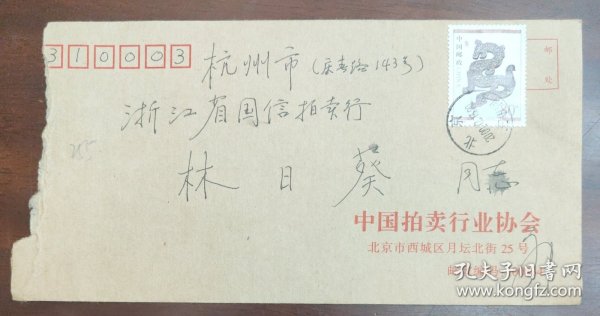 310003
杭州市(庆春路143号)
浙江省国信拍卖行
林日葵 同志
中国邮政
邮
处
北京
中国拍卖行业协会
北京市西城区月坛北街25号
孔夫子旧书网
www.kongfz.com